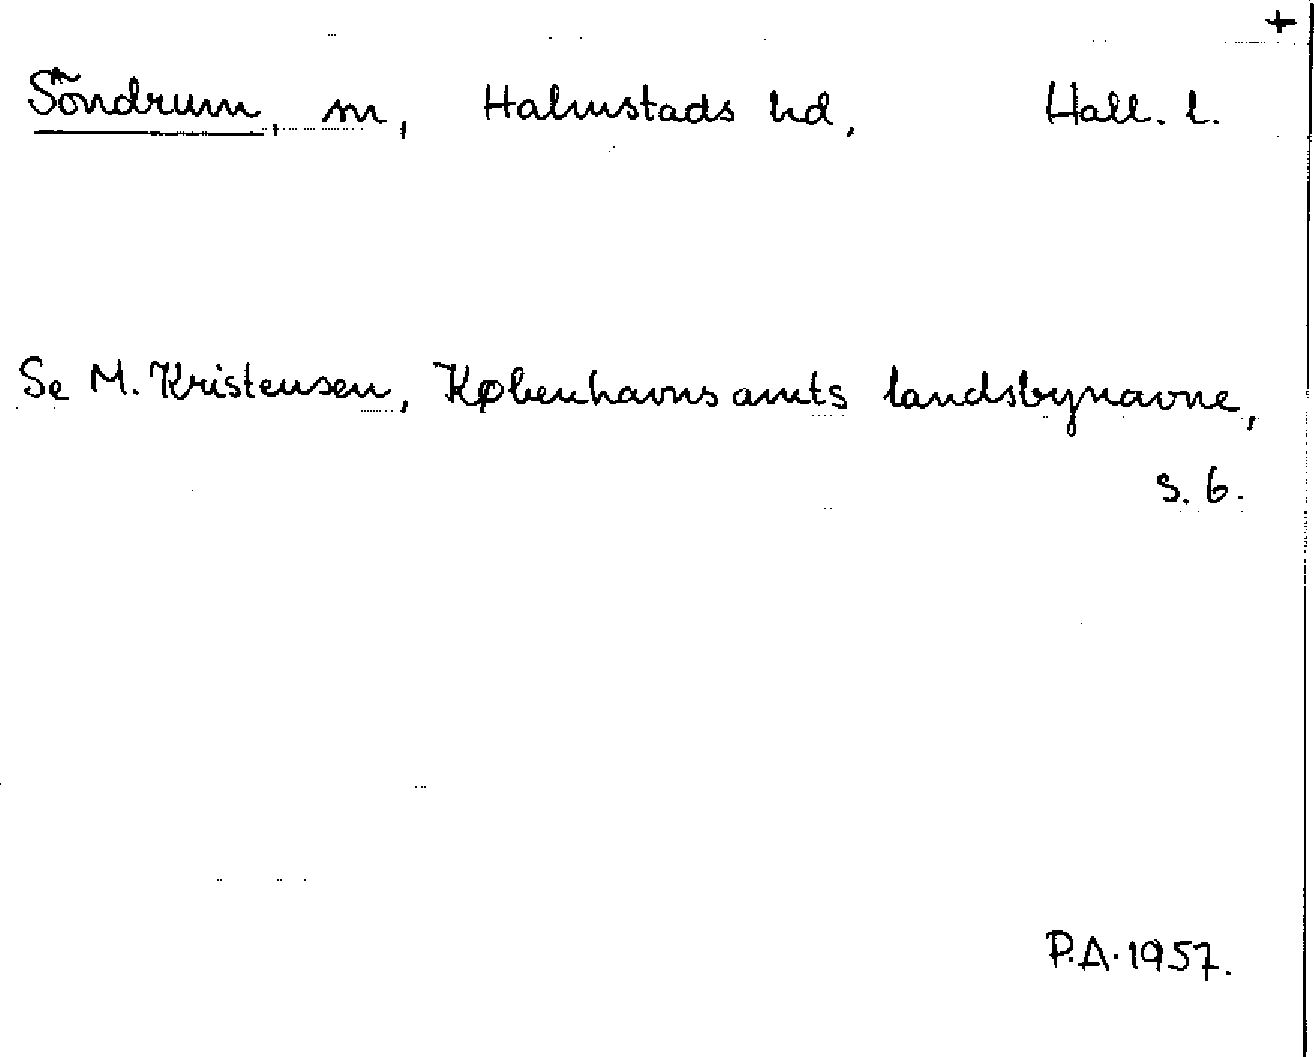 +
Söndrum, sn, Halmstads hd, Hall. l.
Se M. Kristensen, Københavns amts landsbynavne,
s. 6.
P.A. 1957.